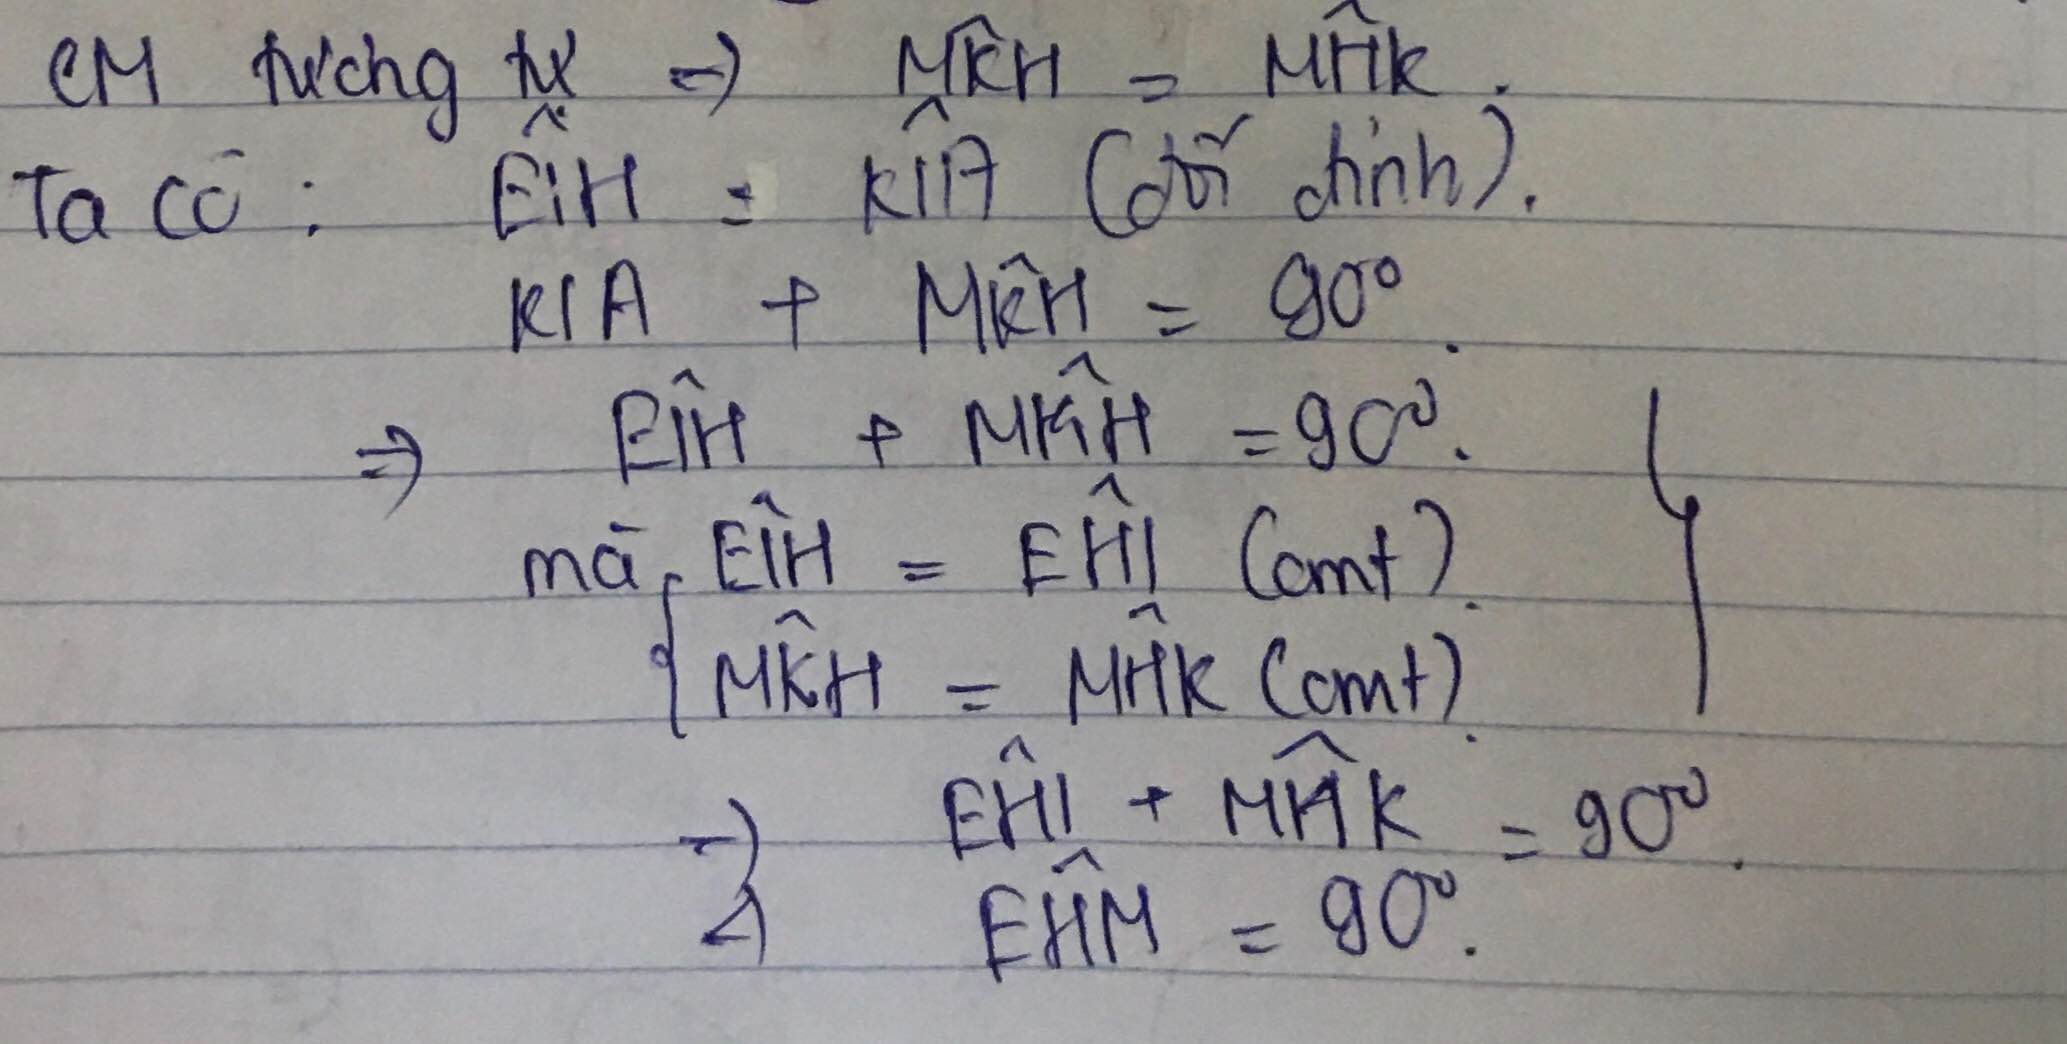 CM tương tự => M̂KH = MĤK.
Ta có: EÎH = KÎA (đối đỉnh).
KIA + MK̂H = 90°.
=> EÎH + MK̂H = 90°.
mà EÎH = EĤI (cmt).
{ MK̂H = MĤK (cmt).
=> EĤI + MĤK = 90°.
=> EĤM = 90°.